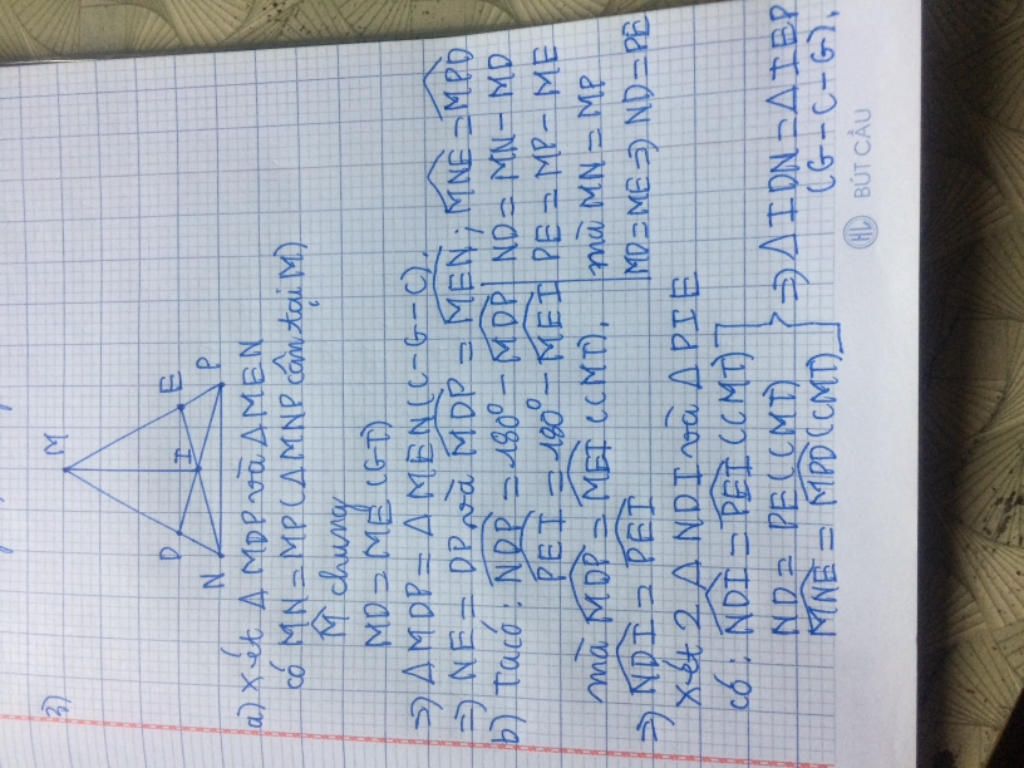 3)
M
D
E
I
N
P
a) xét Δ MDP và Δ MEN
có MN = MP (Δ MNP cân tại M)
M̂ chung
MD = ME (GT)
=> Δ MDP = Δ MEN (C-G-C).
=> NE = DP và \widehat{MDP} = \widehat{MEN}; \widehat{MNE} = \widehat{MPD}
b) Ta có: \widehat{NDP} = 180° - \widehat{MDP}
\widehat{PEI} = 180° - \widehat{MEI}
mà \widehat{MDP} = \widehat{MEI} (CMT).
=> \widehat{NDI} = \widehat{PEI}
ND = MN - MD
PE = MP - ME
mà MN = MP
MD = ME => ND = PE
xét 2 Δ NDI và Δ PIE
có: \widehat{NDI} = \widehat{PEI} (CMT)
ND = PE (CMT)
\widehat{MNE} = \widehat{MPD} (CMT)
=> Δ IDN = Δ IEP
(G-C-G).
HL BÚT CẦU